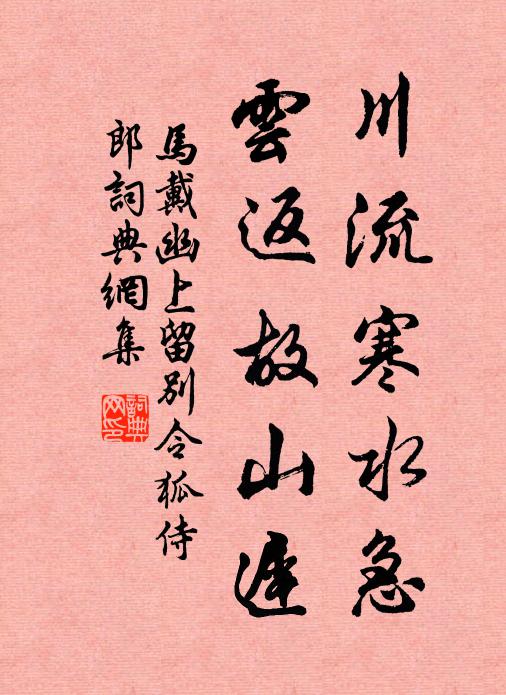 川流寒水急
雲返故山遲
馬戴幽上留別令狐侍
郎詞典網集
詞典
网印